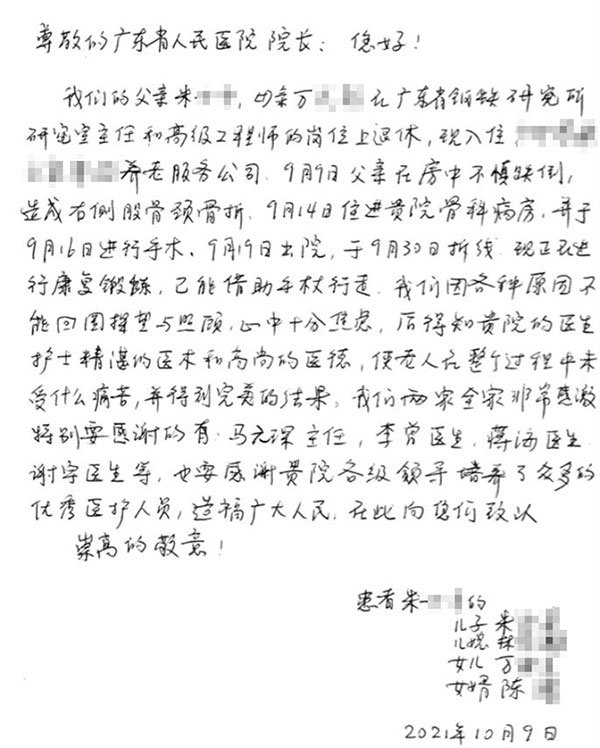 尊敬的广东省人民医院院长：您好！
我们的父亲朱，母亲万在广东省钢铁研究所
研究室主任和高级工程师的岗位上退休，现入住
养老服务公司．9月9日父亲在房中不慎跌倒，
造成右侧股骨颈骨折．9月14日住进贵院骨科病房，并于
9月16日进行手术、9月19日出院，于9月30日拆线．现正在进
行康复锻炼，已能借助手杖行走．我们因各种原因不
能回国探望与照顾，心中十分焦虑，后得知贵院的医生
护士精湛的医术和高尚的医德，使老人在整个过程中未
受什么痛苦，并得到完美的结果。我们两家全家非常感激
特别要感谢的有：马元琛主任，李曾医生，蒋涛医生
谢宇医生等，也要感谢贵院各级领导培养了众多的
优秀医护人员，造福广大人民．在此向您们致以
崇高的敬意！
患者朱的
儿子 朱
儿媳 林
女儿 万
女婿 陈
2021年10月9日